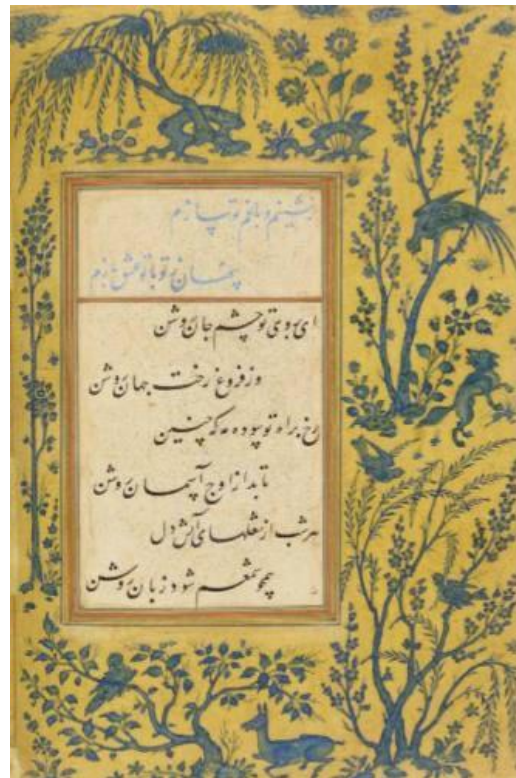 بنشینم و با غم تو سازم
پنهان ز تو با تو عشق بازم
ای بروی تو چشم جان روشن
وز فروغ رخت جهان روشن
رخ براه تو سوده مه که چنین
تابد از اوج آسمان روشن
هر شب از شعلهای آتش دل
همچو شمعم شود زبان روشن